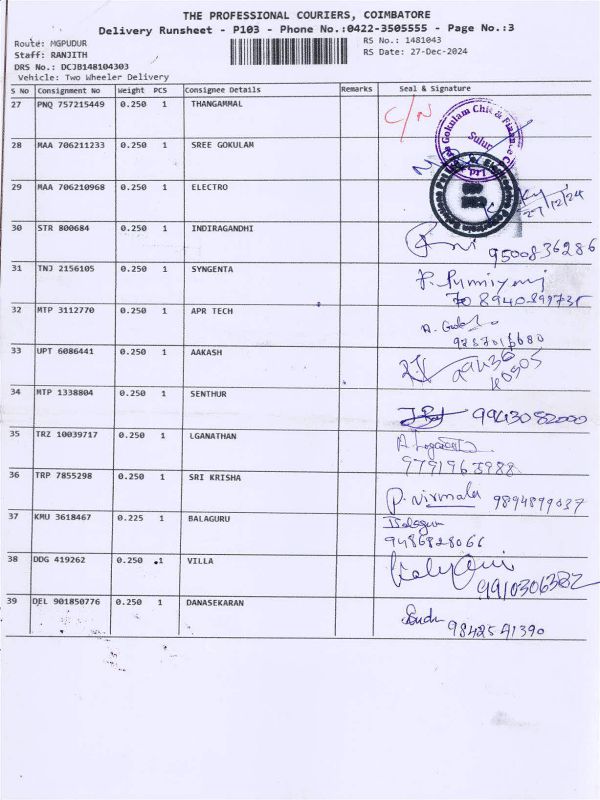 THE PROFESSIONAL COURIERS, COIMBATORE
Delivery Runsheet - P103 - Phone No.:0422-3505555 - Page No.:3
Route: MGPUDUR
RS No.: 1481043
Staff: RANJITH
RS Date: 27-Dec-2024
DRS No.: DCJB148104303
Vehicle: Two Wheeler Delivery
S No Consignment No Weight PCS Consignee Details Remarks Seal & Signature
27 PNQ 757215449 0.250 1 THANGAMMAL C/N
Gokulam Chit & Finance
Sulur
28 MAA 706211233 0.250 1 SREE GOKULAM
29 MAA 706210968 0.250 1 ELECTRO
27/12/24
30 STR 800684 0.250 1 INDIRAGANDHI
9500836286
31 TNJ 2156105 0.250 1 SYNGENTA
8940899735
32 MTP 3112770 0.250 1 APR TECH
33 UPT 6086441 0.250 1 AAKASH
34 MTP 1338804 0.250 1 SENTHUR
9943082000
35 TRZ 10039717 0.250 1 LGANATHAN
9791963988
36 TRP 7855298 0.250 1 SRI KRISHA
P. Nirmala 9894899037
37 KMU 3618467 0.225 1 BALAGURU
Balaguru
9486828066
38 DDG 419262 0.250 1 VILLA
9910306382
39 DEL 901850776 0.250 1 DANASEKARAN
9842541390